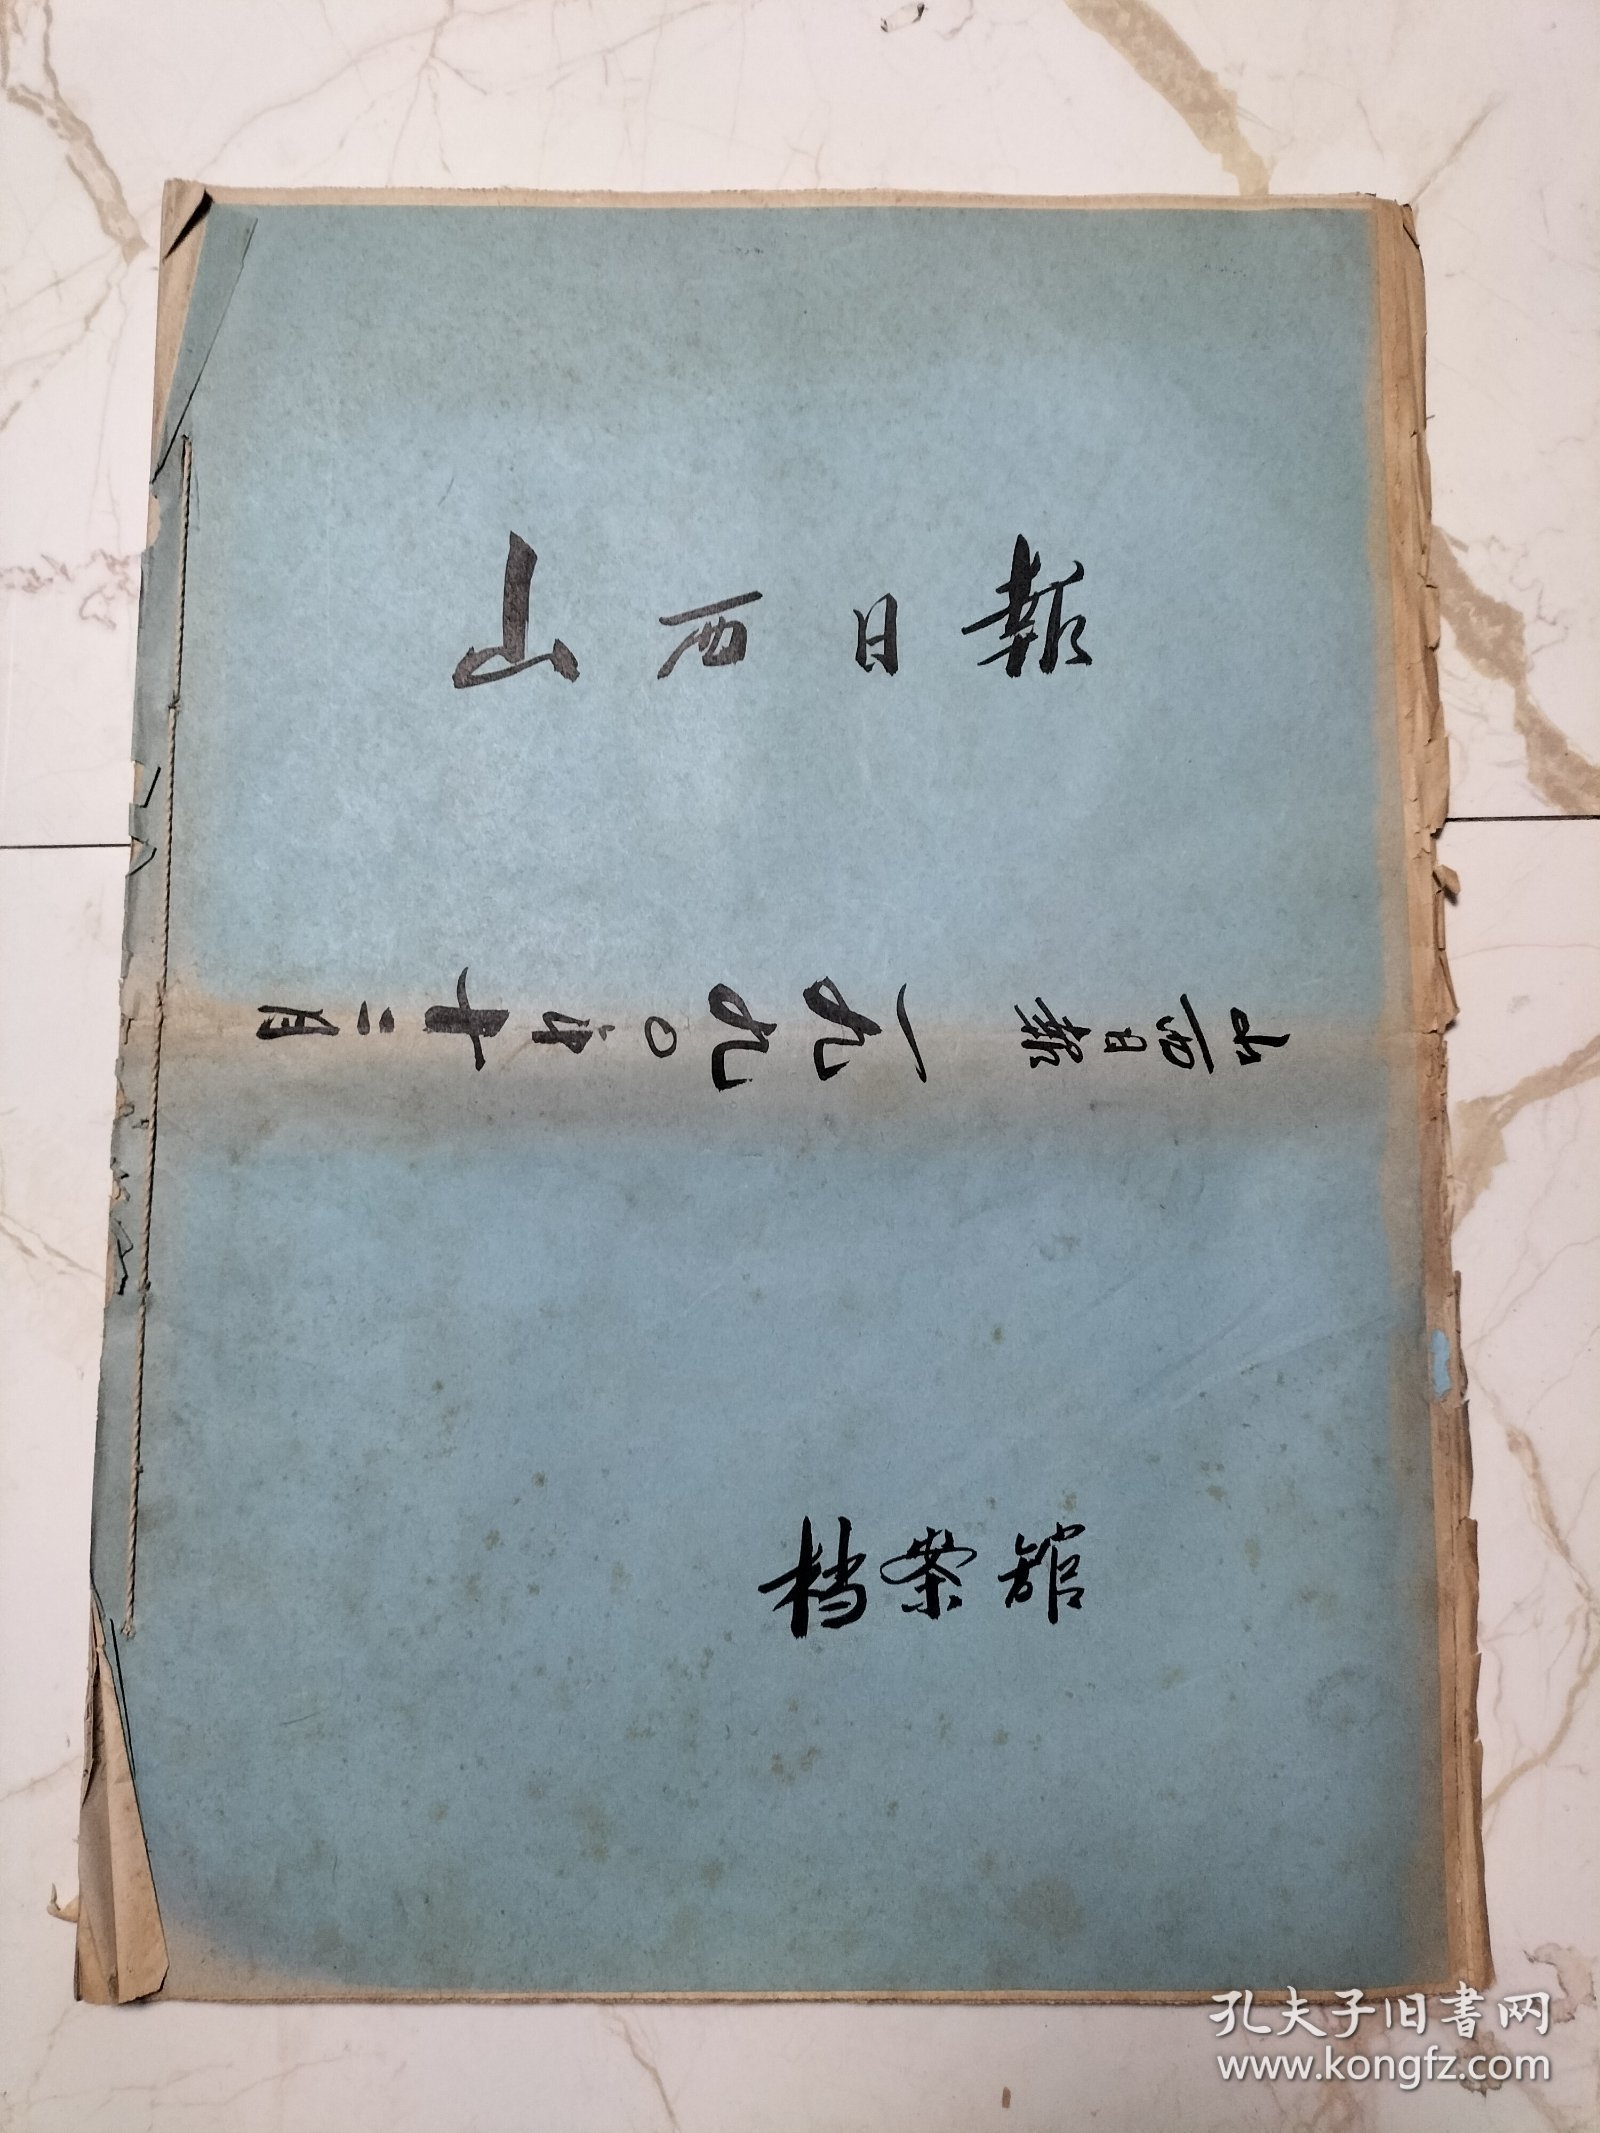 山西日報
山西日報 一九九〇年十二月
档案館
孔夫子旧书网
www.kongfz.com